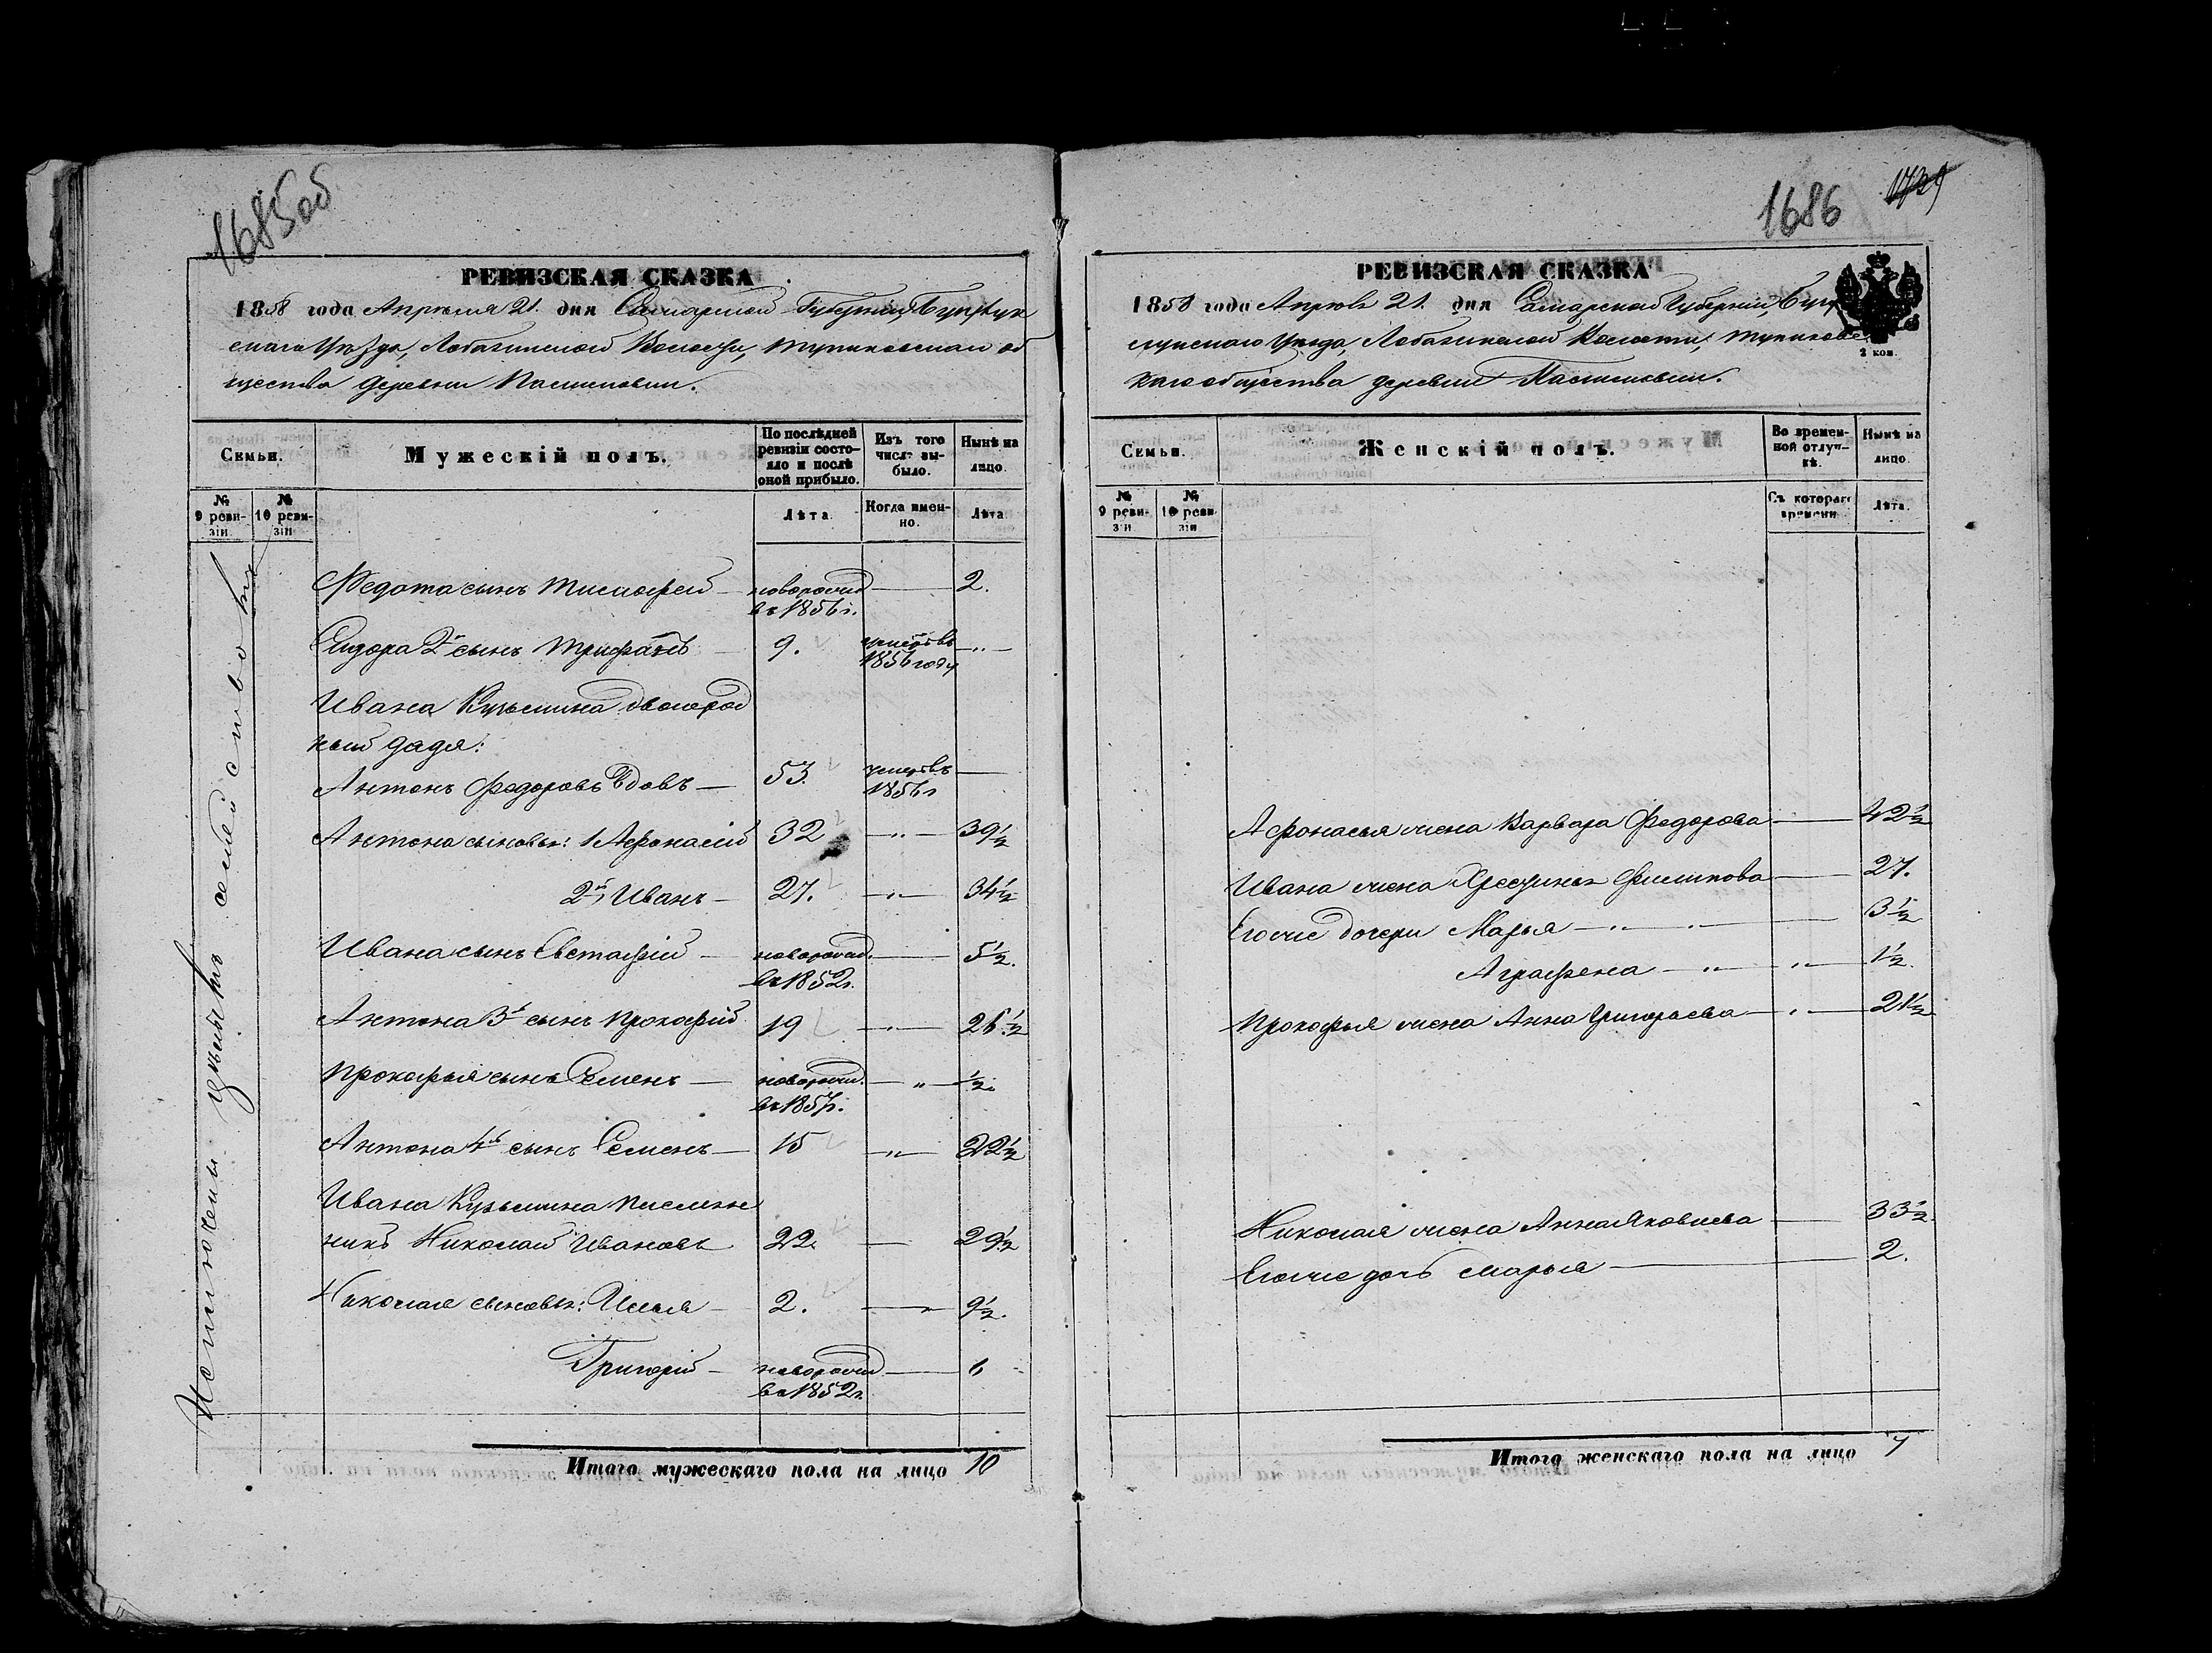 1685об
РЕВИЗСКАЯ СКАЗКА
1858 года Апреля 21. дня Самарской Губерніи, Бугурус
ланскаго Уѣзда, Лобазинской Волости, об
щества деревни
Семьи.
Мужескій полъ.
По послѣдней ревизіи состояло и послѣ оной прибыло.
Изъ того числа выбыло.
Нынѣ на лицо.
№ 9 ревизіи
№ 10 ревизіи
Лѣта
Когда именно.
Лѣта
Федота сынъ Тимофей — новорожд. въ 1856 г. — 2.
Сидора 2й сынъ Трифанъ — 9. умеръ въ 1856 году — " —
Ивана Кузьмина двоюрод
ный дядя:
Антонъ Федоровъ вдовъ — 53. умеръ въ 1856 г —
Антона сыновья: 1 Афонасій 32 — " — 39½
2й Иванъ — 27. — " — 34½
Ивана сынъ Евстафій — новорожд. въ 1852 г. — 5½.
Антона 3й сынъ Прокофій 19 — " — 26½
Прокофья сынъ Семенъ — новорожд. въ 1857 г. — " — ½.
Антона 4й сынъ Семенъ — 15 — " — 22½
Ивана Кузьмина племян
никъ Николай Ивановъ 22. — 29½
Николая сыновья: Илья — 2. — 9½.
Григорій — новорожд въ 1852 г. — 6
Итого мужескаго пола на лицо 10
1686
1729
РЕВИЗСКАЯ СКАЗКА
1858 года Апрѣля 21. дня Самарской Губерніи, Бугу
русланскаго Уѣзда, Лобазинской Волости,
скаго общества деревни
2 коп.
Семьи.
Женскій полъ.
Во временной отлучкѣ.
Нынѣ на лицо.
№ 9 ревизіи
№ 10 ревизіи
Съ котораго времени
Лѣта.
Афонасья жена Варвара Федорова — 42½
Ивана жена Филипова — 27.
Егоже дочери Марья — " — " — 3½
Аграфена — " — " — 1½.
Прокофья жена Анна Григорьева — " — 21½
Николая жена Анна Яковлева — 33½.
Егоже дочь Марья — 2.
Итого женскаго пола на лицо 7